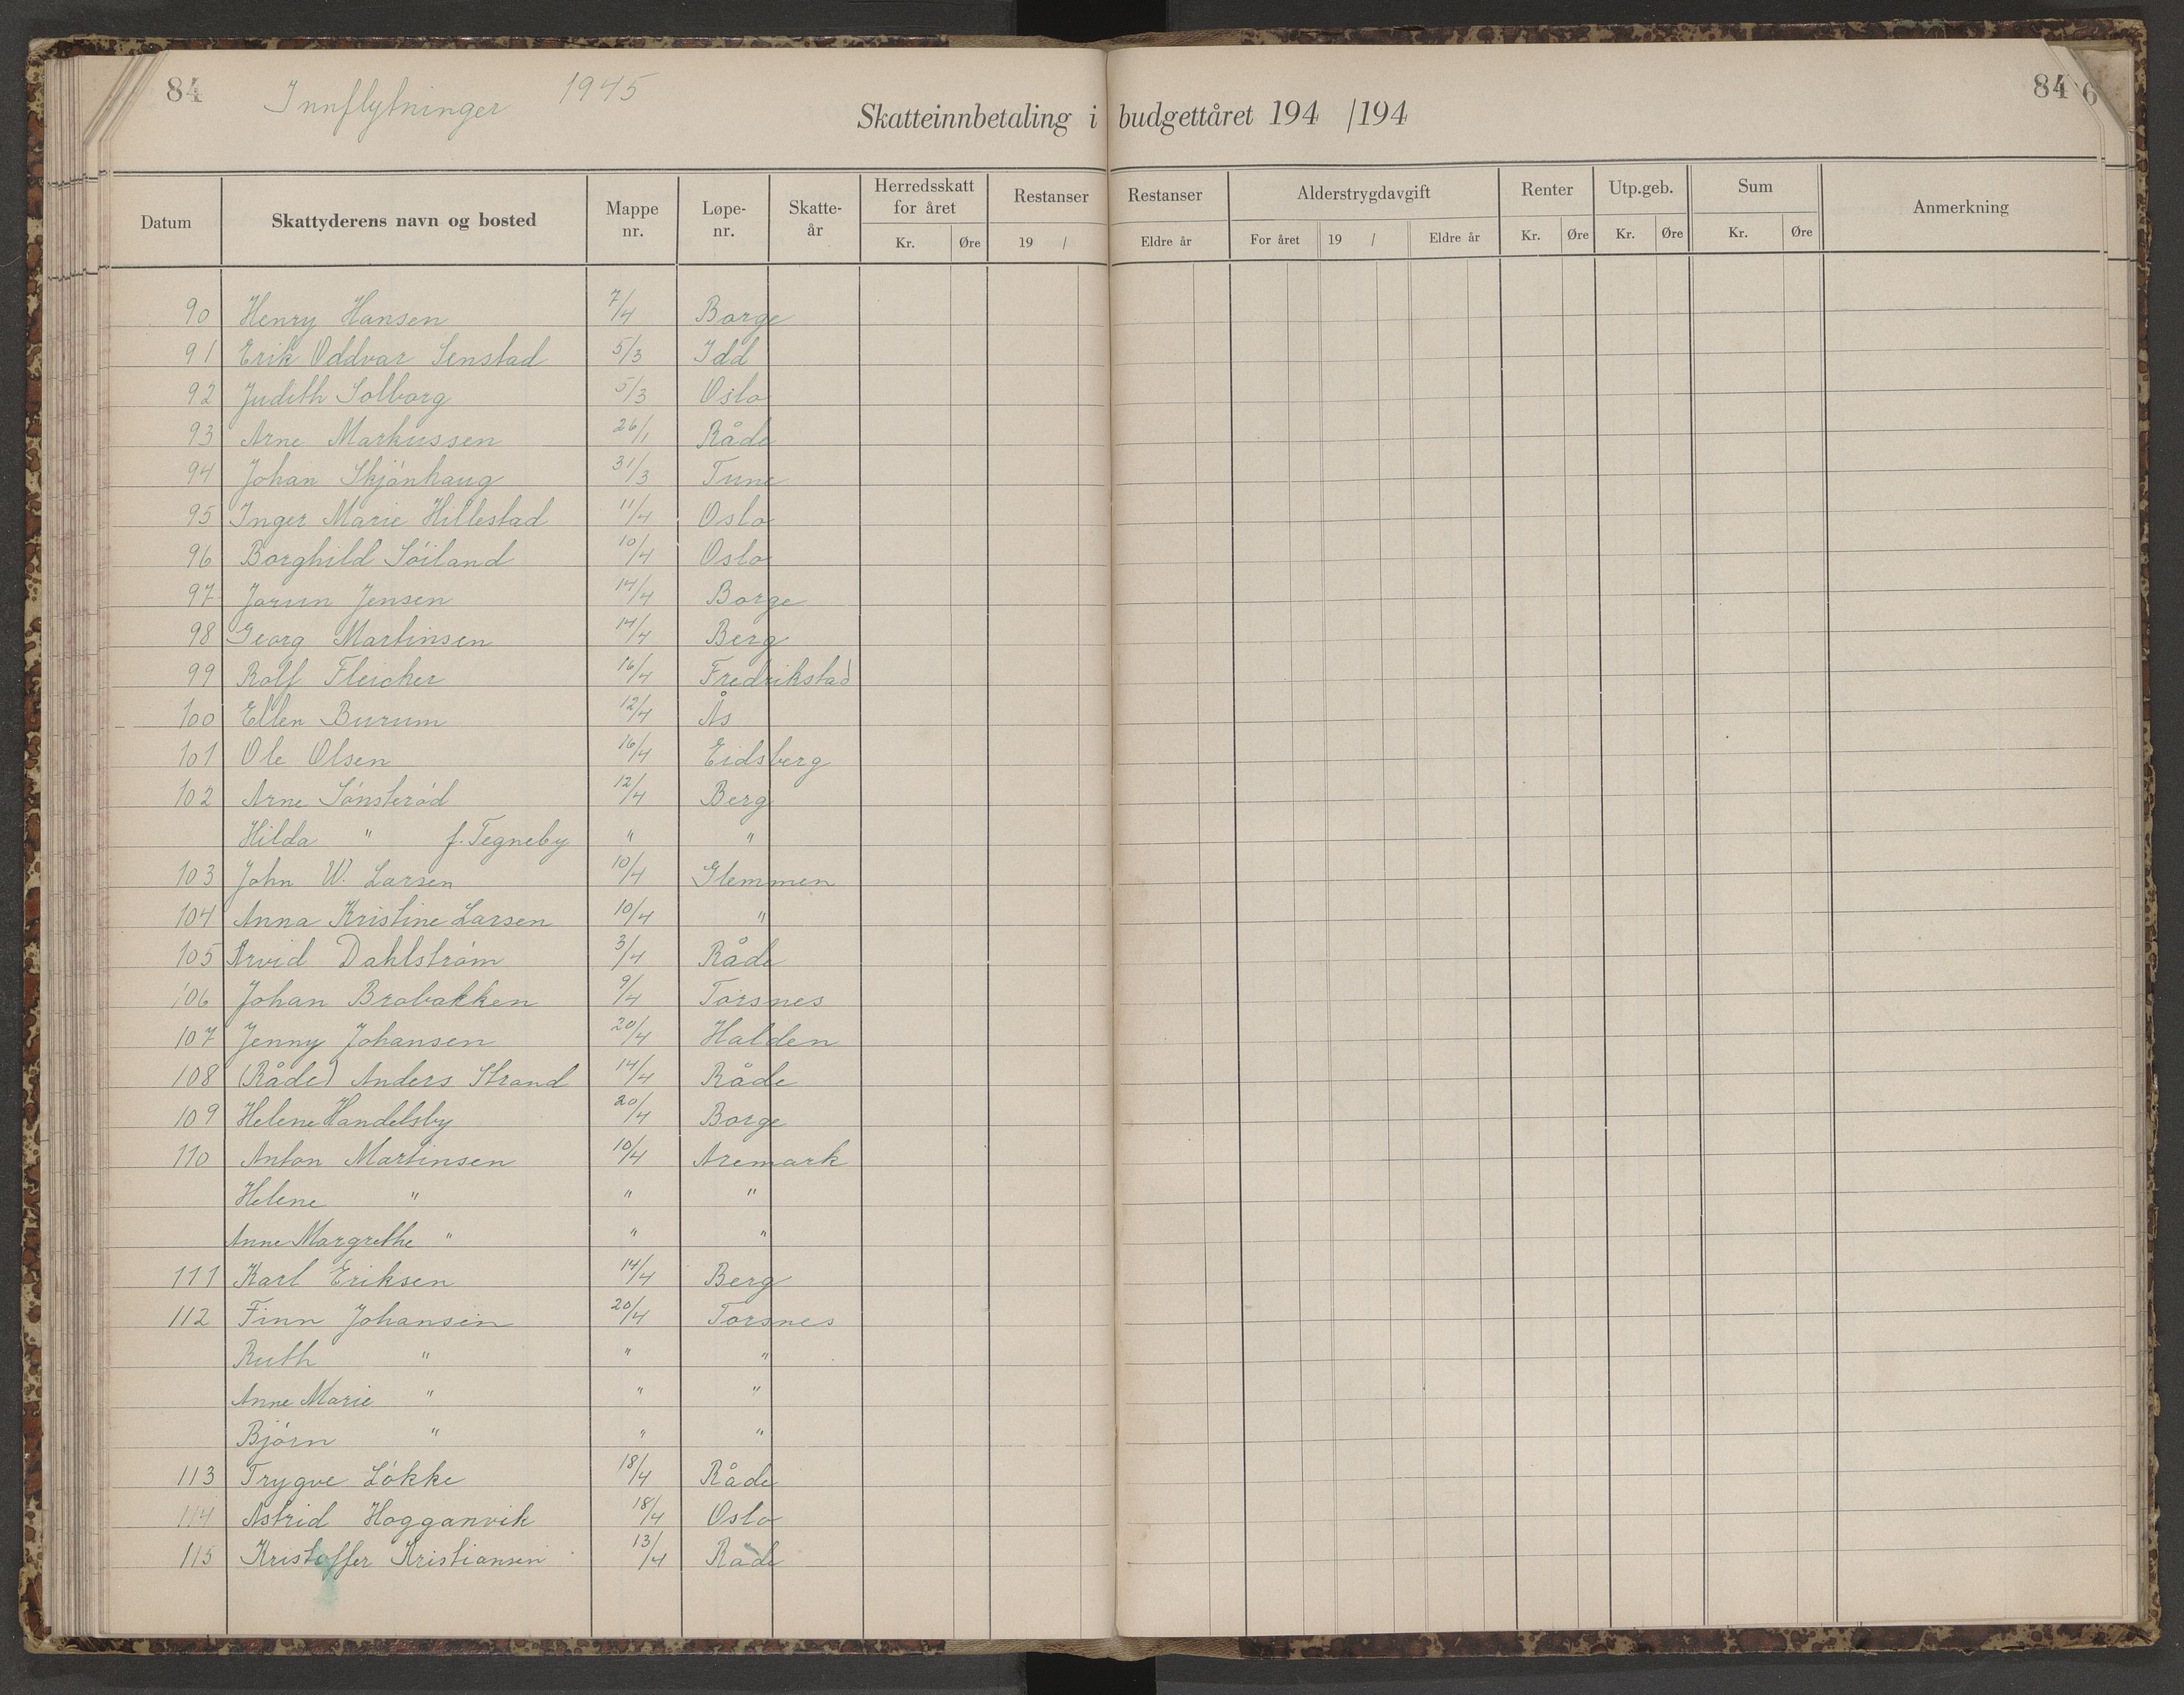 84 Innflytninger 1945 84 6
Skatteinnbetaling i budgettåret 194 /194
Datum Skattyderens navn og bosted Mappe nr. Løpe- nr. Skatte- år Herredsskatt for året Kr. Øre Restanser 19 / Restanser Eldre år Alderstrygdavgift For året 19 / Eldre år Renter Kr. Øre Utp.geb. Kr. Øre Sum Kr. Øre Anmerkning
90 Henry Hansen 7/4 Borge
91 Erik Oddvar Senstad 5/3 Idd
92 Judith Solborg 5/3 Oslo
93 Arne Markussen 26/1 Råde
94 Johan Skjónhaug 31/3 Tune
95 Inger Marie Hillestad 11/4 Oslo
96 Borghild Sóiland 10/4 Oslo
97 Jorun Jensen 14/4 Borge
98 Georg Martinsen 14/4 Berg
99 Rolf Fleicher 16/4 Fredrikstad
100 Ellen Burum 12/4 Ås
101 Ole Olsen 16/4 Eidsberg
102 Arne Sónsteród 12/4 Berg
Hilda " f. Tegneby " "
103 John W. Larsen 10/4 Glemmen
104 Anna Kristine Larsen 10/4 "
105 Arvid Dahlstróm 3/4 Råde
106 Johan Brobakken 9/4 Torsnes
107 Jenny Johansen 20/4 Halden
108 (Råde) Anders Strand 14/4 Råde
109 Helene Handelsby 20/4 Borge
110 Anton Martinsen 10/4 Aremark
Helene " " "
Anne Margrethe " " "
111 Karl Eriksen 14/4 Berg
112 Finn Johansen 20/4 Torsnes
Ruth " " "
Anne Marie " " "
Bjórn " " "
113 Trygve Lókke 18/4 Råde
114 Astrid Hogganvik 18/4 Oslo
115 Kristoffer Kristiansen 13/4 Råde